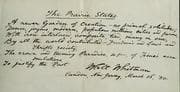 The Prairie States.
A newer Garden of Creation — no primal solitude,
Dense, joyous, modern, populous millions, cities and farms
With iron interlaced, composite, tied, many in one,
By all the world contributed —
The crown and teeming Paradise, so far, of Time's accumulations
To justify the Past.
Walt Whitman
Camden, New Jersey, March